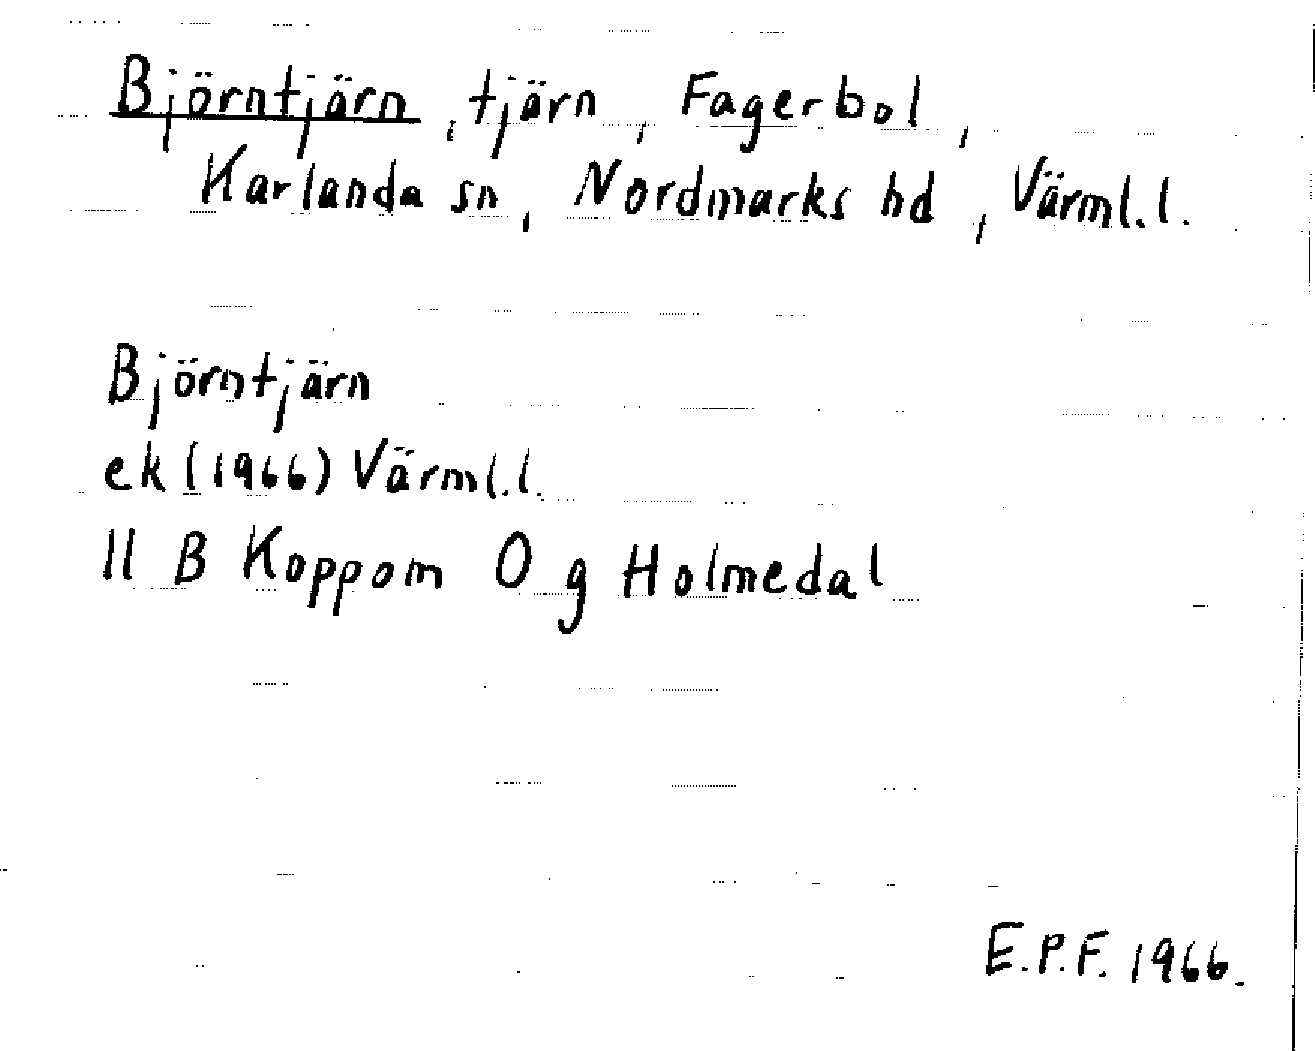 Björntjärn, tjärn, Fagerbol,
Karlanda sn, Nordmarks hd, Värml.l.
Björntjärn
ek (1966) Värml.l.
11 B Koppom 0 g Holmedal
E.P.F. 1966.